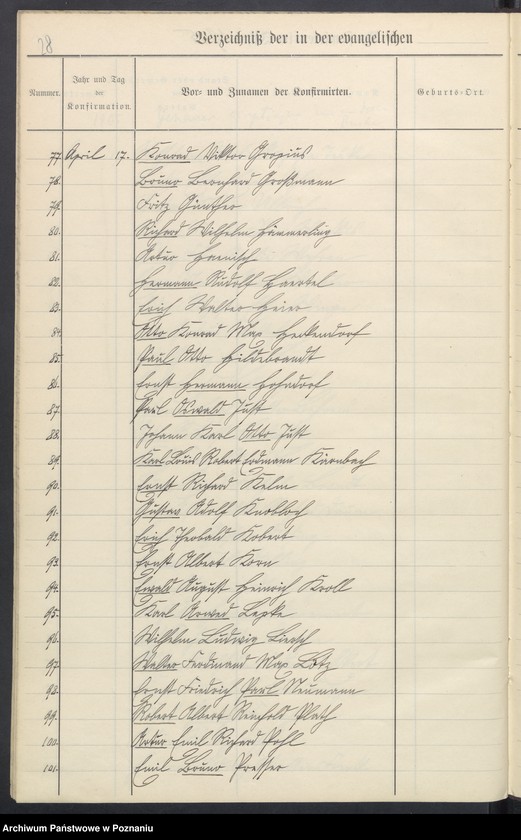 78
Verzeichniß der in der evangelischen
Nummer.
Jahr und Tag
der
Konfirmation.
Vor- und Zunamen der Konfirmirten.
Geburts-Ort.
77. April 17. Konrad Viktor Gropius
78. Bruno Bernhard Großmann
79. Fritz Günther
80. Richard Wilhelm Hämmerling
81. Artur Haenisch
82. Hermann Rudolf Haertel
83. Erich Walter Heier
84. Otto Konrad Max Heckendorf
85. Paul Otto Hildebrandt
86. Ernst Hermann Hohndorf
87. Paul Oswald Just
88. Johann Karl Otto Just
89. Karl Louis Robert Erdmann Kärnbach
90. Ernst Richard Kelm
91. Gustav Adolf Knobloch
92. Erich Theobald Kobert
93. Ernst Albert Korn
94. Ewald August Heinrich Kroll
95. Karl Arwed Lepke
96. Wilhelm Ludwig Liersch
97. Walter Ferdinand Max Lotz
98. Ernst Friedrich Paul Neumann
99. Robert Albert Reinhold Plath
100. Artur Emil Richard Pohl
101. Emil Bruno Presser
Archiwum Państwowe w Poznaniu